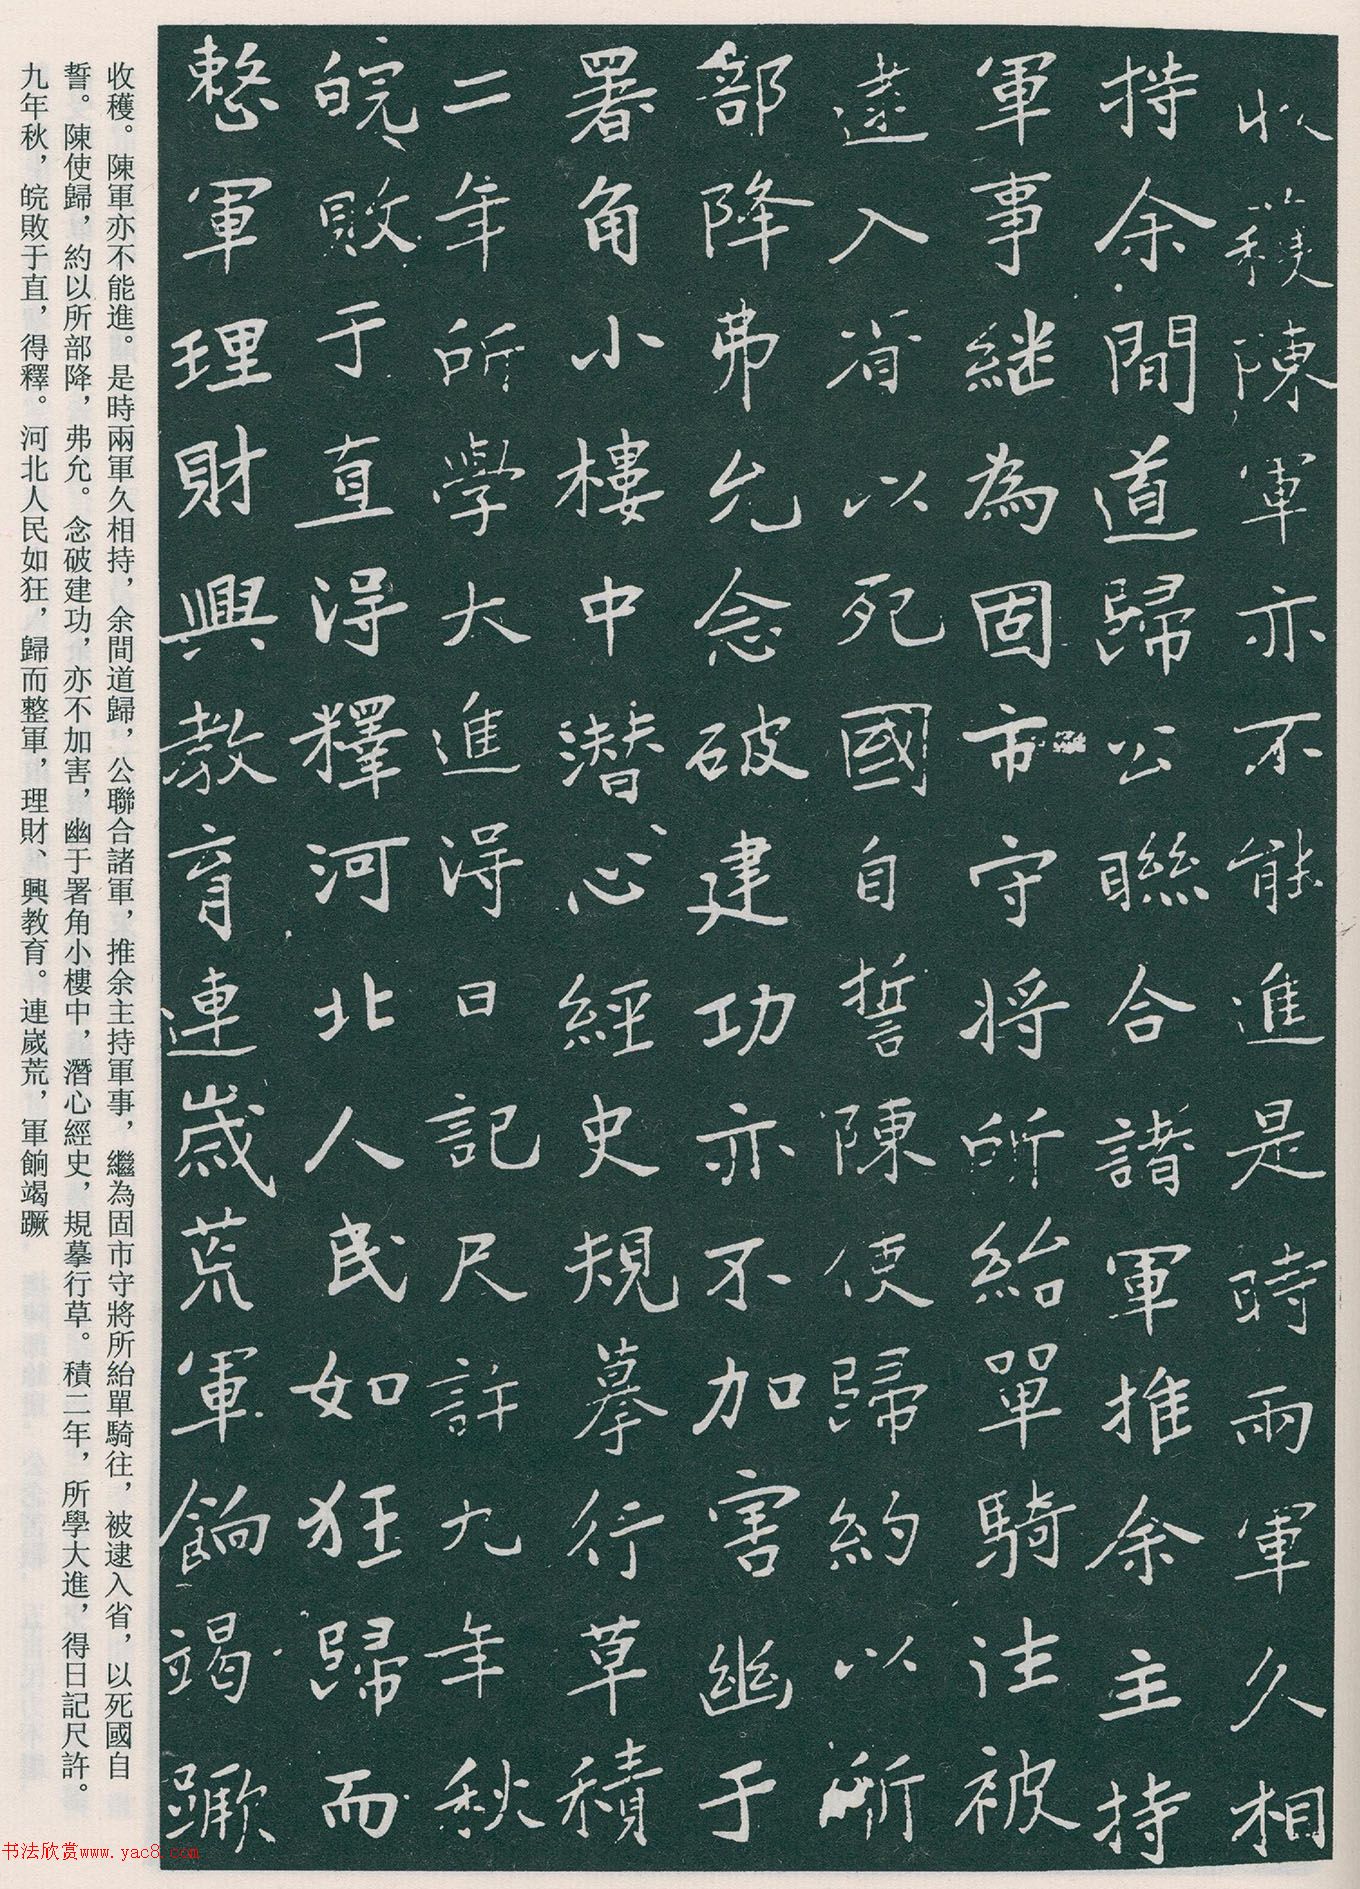 收穫陳軍亦不能進是時兩軍久相
持余間道歸公聯合諸軍推余主持
軍事継為固市守将所紿單騎往被
逮入省以死國自誓陳使歸約以所
部降弗允念破建功亦不加害幽于
署角小樓中潜心經史規摹行草積
二年所學大進得日記尺許九年秋
皖敗于直得釋河北人民如狂歸而
整軍理財興教育連嵗荒軍餉竭蹶
收穫。陳軍亦不能進。是時兩軍久相持，余間道歸，公聯合諸軍，推余主持軍事，繼為固市守將所紿單騎往，被逮入省，以死國自
誓。陳使歸，約以所部降，弗允。念破建功，亦不加害，幽于署角小樓中，潛心經史，規摹行草。積二年，所學大進，得日記尺許。
九年秋，皖敗于直，得釋。河北人民如狂，歸而整軍，理財、興教育。連嵗荒，軍餉竭蹶
书法欣赏www.yac8.com